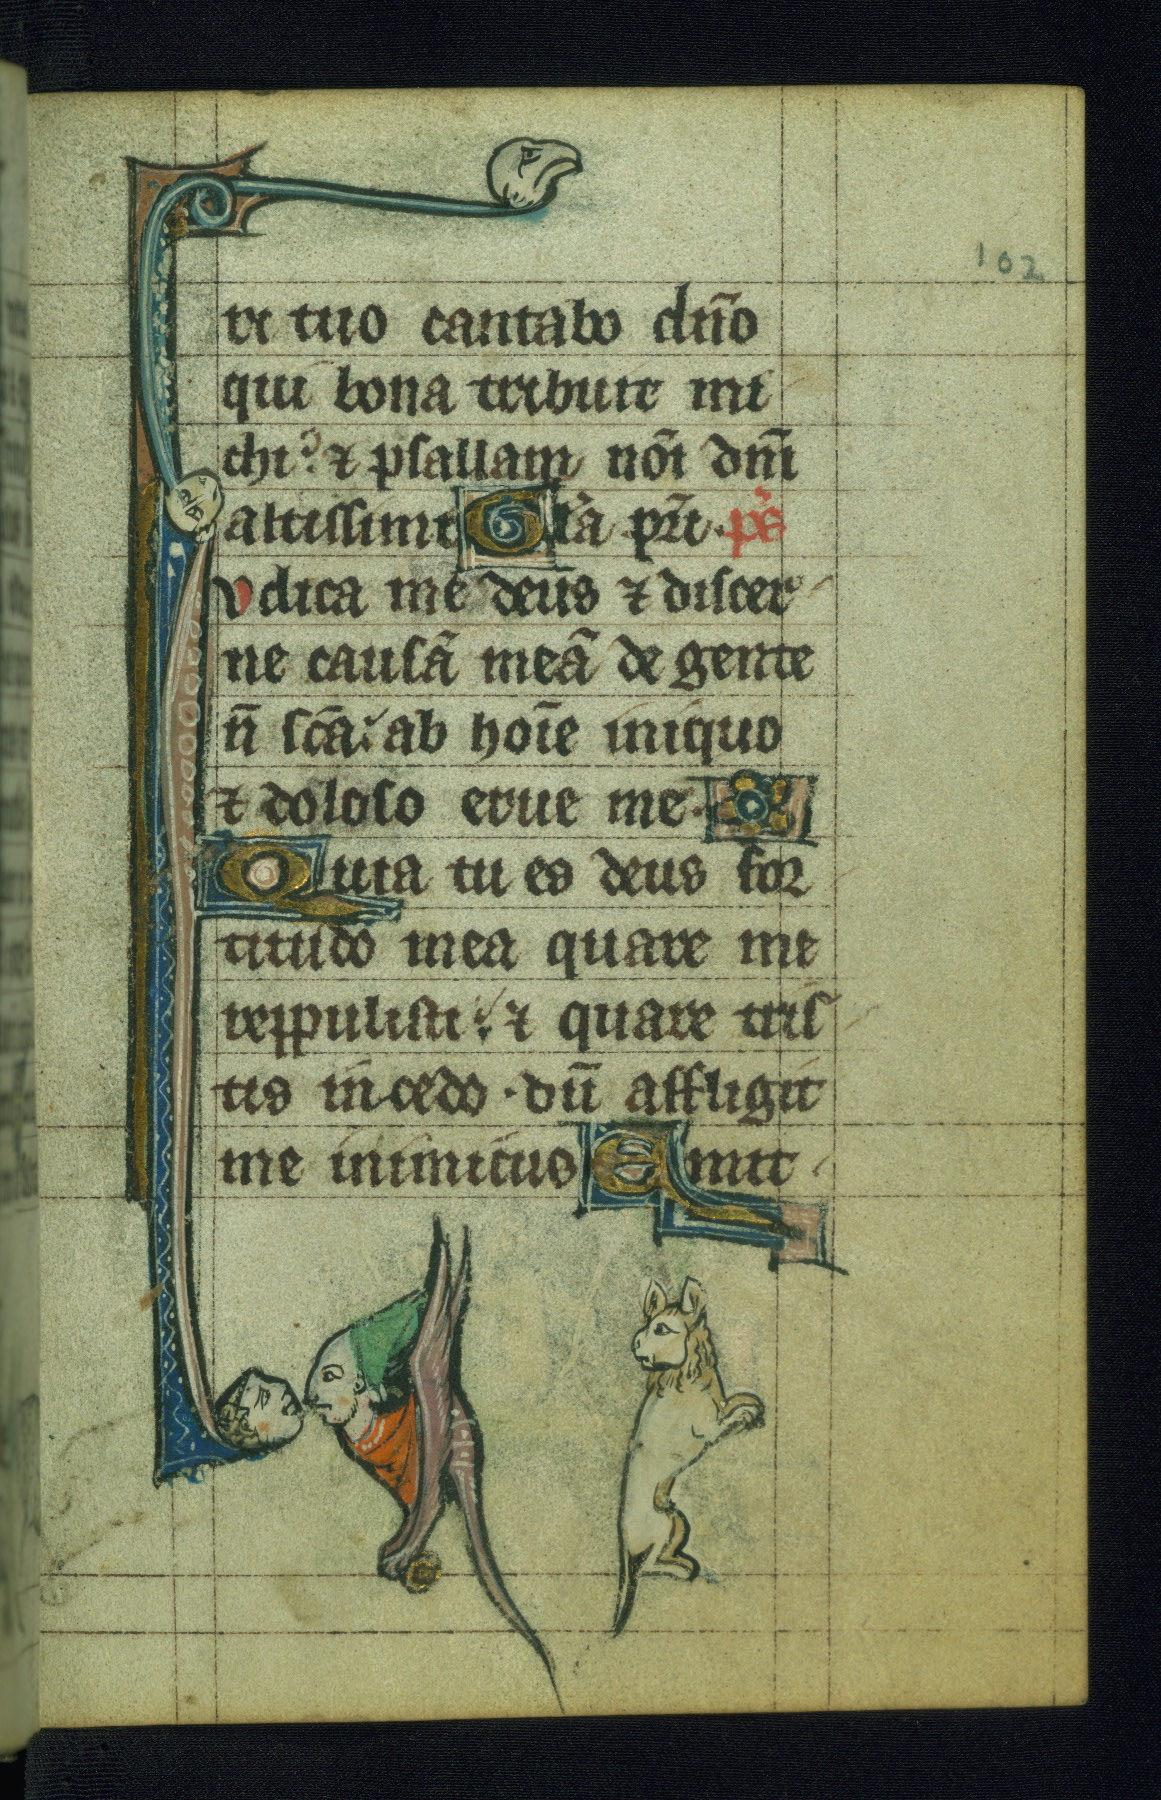 102
ri tuo cantabo dño
qui bona tribuit mi
chi: ⁊ psallam nõi dñi
altissimi Gl'a pr̃i. ps̃
vdica me deus ⁊ discer
ne causã meã de gente
ñ scã: ab hoĩe iniquo
⁊ doloso erue me.
Quia tu es deus for
titudo mea quare me
reppulisti: ⁊ quare tris
tis incedo. dũ affligit
me inimicus Emit